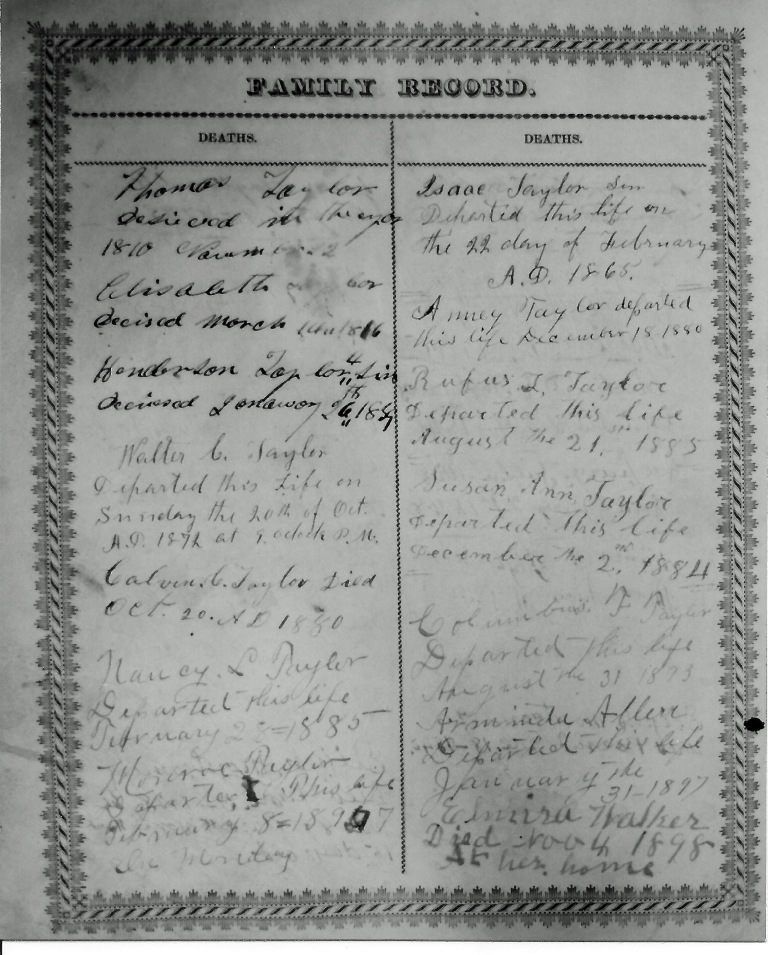 FAMILY RECORD.
DEATHS.
Thomas Taylor
Decieced in the year
1810
Elisabeth
Decised March 1816
Henderson Taylor
Decissed
Walter C. Taylor
Departed this Life on
Sunday the 20th of Oct.
A.D. 1872 at oclock P.M.
Calvin C. Taylor Died
Oct. 20. AD 1880
Nancy. L Taylor
Departed this life
February 1885
Monroe Taylor
this life
February 8=189
Monday
DEATHS.
Isaac Taylor Sen
Departed this life on
the 22 day of February
A.D. 1865.
Anney Taylor departed
this life December 18 1880
Rufus L. Taylor
Departed this life
August the 21. st 1885
Susan Ann Taylor
Departed this life
December the 2. nd 1884
Columbus Taylor
Departed this life
August the 31 1893
Arminda Allen
Departed this life
January the
31-1897
Elmira Walker
Died Nov 4 1898
At her home